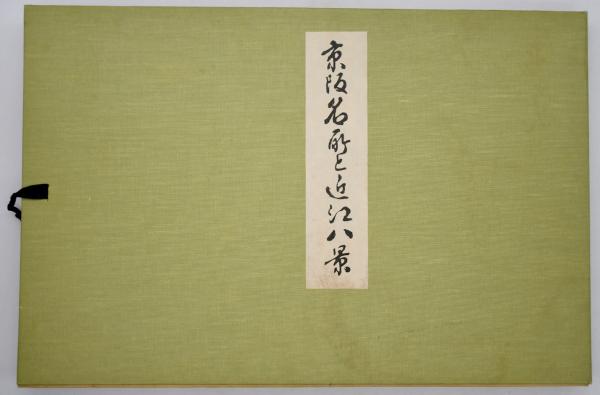 京阪名所と近江八景